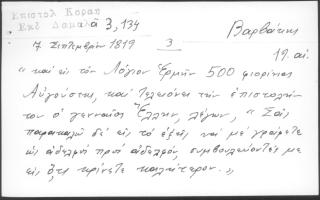 Επιστολ Κοραη
Εκδ Δαμαλᾶ 3, 134
Βαρβάκης
7 Σεπτεμβρίου 1819
3
19. αἰ.
"καί εἰς τόν Λόγιον Ἑρμῆν 500 φιορίνια
Αὐγούστης, καί τελειόνει τήν ἐπιστολήν
του ὁ γενναῖος Ἕλλην, λέγων, "Σᾶς
παρακαλῶ δέ εἰς τό ἑξῆς νά μέ γράφετε
ὡς ἀδελφός πρός ἀδελφόν, συμβουλεύοντές με
εἰς ὅ,τι κρίνετε καλήτερον.,,